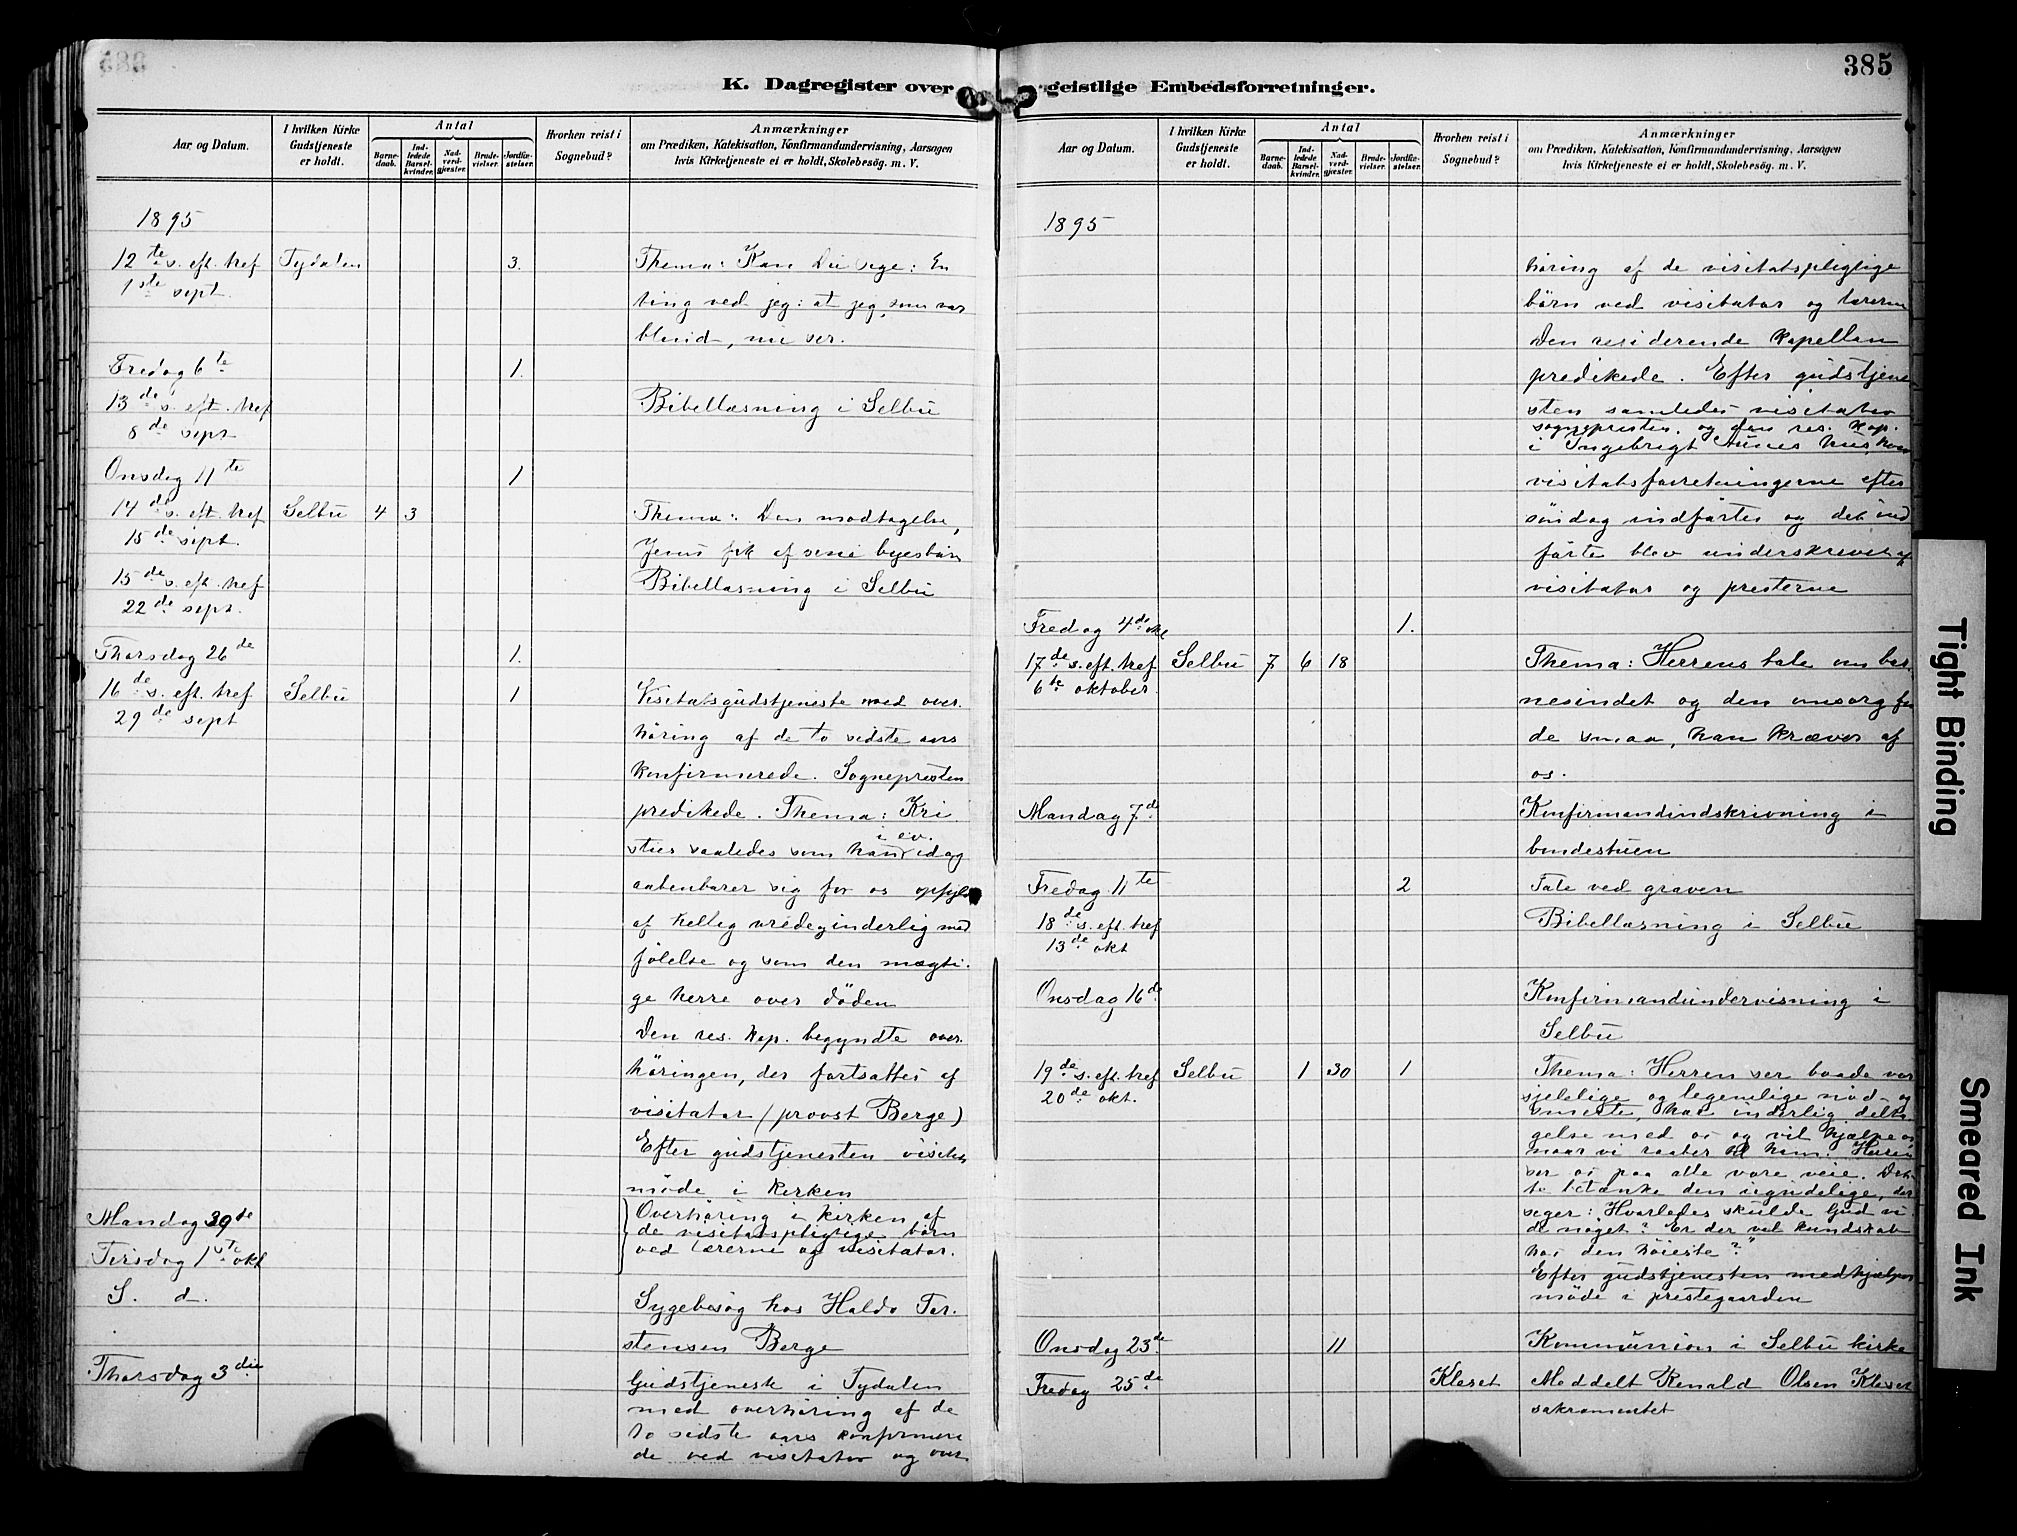 385
K. Dagregister over geistlige Embedsforretninger.
Aar og Datum.
I hvilken Kirke Gudstjeneste er holdt.
Antal
Barnedaab.
Indledede Barselkvinder.
Nadverdgjæster.
Brudevielser.
Jordfæstelser.
Hvorhen reist i Sognebud?
Anmærkninger
om Prædiken, Katekisation, Konfirmandundervisning, Aarsagen
hvis Kirketjeneste ei er holdt, Skolebesøg. m. V.
1895
12te s. eft. tref Tydalen 3. Thema: Kan Du sige: En
1ste sept. ting ved jeg: at jeg, som var
blind, nu ser.
Fredag 6te 1.
13de s. eft. tref Bibellæsning i Selbu
8de sept
Onsdag 11te 1
14de s. eft. tref Selbu 4 3 Thema: Den modtagelse,
15de sept. Jesus fik af sine byesbørn
15de s. eft. tref Bibellæsning i Selbu
22de sept.
Thorsdag 26de 1.
16de s. eft. tref Selbu 1 Visitatsgudstjeneste med over-
29de sept høring af de to sidste aars
konfirmerede. Sognepresten
predikede. Thema: Kri
i ev.
stus saaledes som han idag
aabenbarer sig for os opfyldt
af hellig vrede, inderlig med
følelse og som den mægti-
ge herre over døden
Den res. kap. begyndte over-
høringen, der fortsattes af
visitator (provst Berge)
Efter gudstjenesten visitats
møde i kirken
Mandag 30te Overhøring i kirken af
de visitatspligtige børn
Tirsdag 1ste okt ved lærerne og visitator.
S. d. Sygebesøg hos Haldo Tor-
stensen Berge
Thorsdag 3die Gudstjeneste i Tydalen
med overhøring af de
to sidste aars konfirmere
de ved visitator og over
Aar og Datum.
I hvilken Kirke Gudstjeneste er holdt.
Antal
Barnedaab.
Indledede Barselkvinder.
Nadverdgjæster.
Brudevielser.
Jordfæstelser.
Hvorhen reist i Sognebud?
Anmærkninger
om Prædiken, Katekisation, Konfirmandundervisning, Aarsagen
hvis Kirketjeneste ei er holdt, Skolebesøg. m. V.
1895
høring af de visitatspligtige
børn ved visitator og lærerne
Den residerende kapellan
predikede. Efter gudstjene
sten samledes visitator
sognepresten, og den res. kap.
i Ingebrigt Aunes hus, hvor
visitatsforretningerne efter
søndag indførtes og det ind
førte blev underskrevet af
visitator og presterne
Fredag 4de okt 1.
17de s. eft. tref Selbu 7 6 18 Thema: Herrens tale om bar
6te oktober. nesindet og den omsorg for
de smaa, han kræver af
os.
Mandag 7de Konfirmandindskrivning i
bondestuen
Fredag 11te 2 Tale ved graven
18de s. eft. tref Bibellæsning i Selbu
13de okt
Onsdag 16de Konfirmandundervisning i
Selbu
19de s. eft. tref Selbu 1 30 1 Thema: Herren ser baade vor
20de okt. sjelelige og legemlige nød og
smerte, har inderlig delta
gelse med os og vil hjælpe os
naar vi raaber til ham. Herren
ser os paa alle vore veie. Det-
te betænke den ugudelige, der
siger: Hvorledes skulde Gud vi-
de noget? Er der vel kundskab
hos den høieste?"
Efter gudstjenesten medhjælper
møde i prestegaarden
Onsdag 23de 11 Kommunion i Selbu kirke
Fredag 25de Kleset Meddelt Renald Olsen Kleset
sakramentet
Tight Binding
Smeared Ink